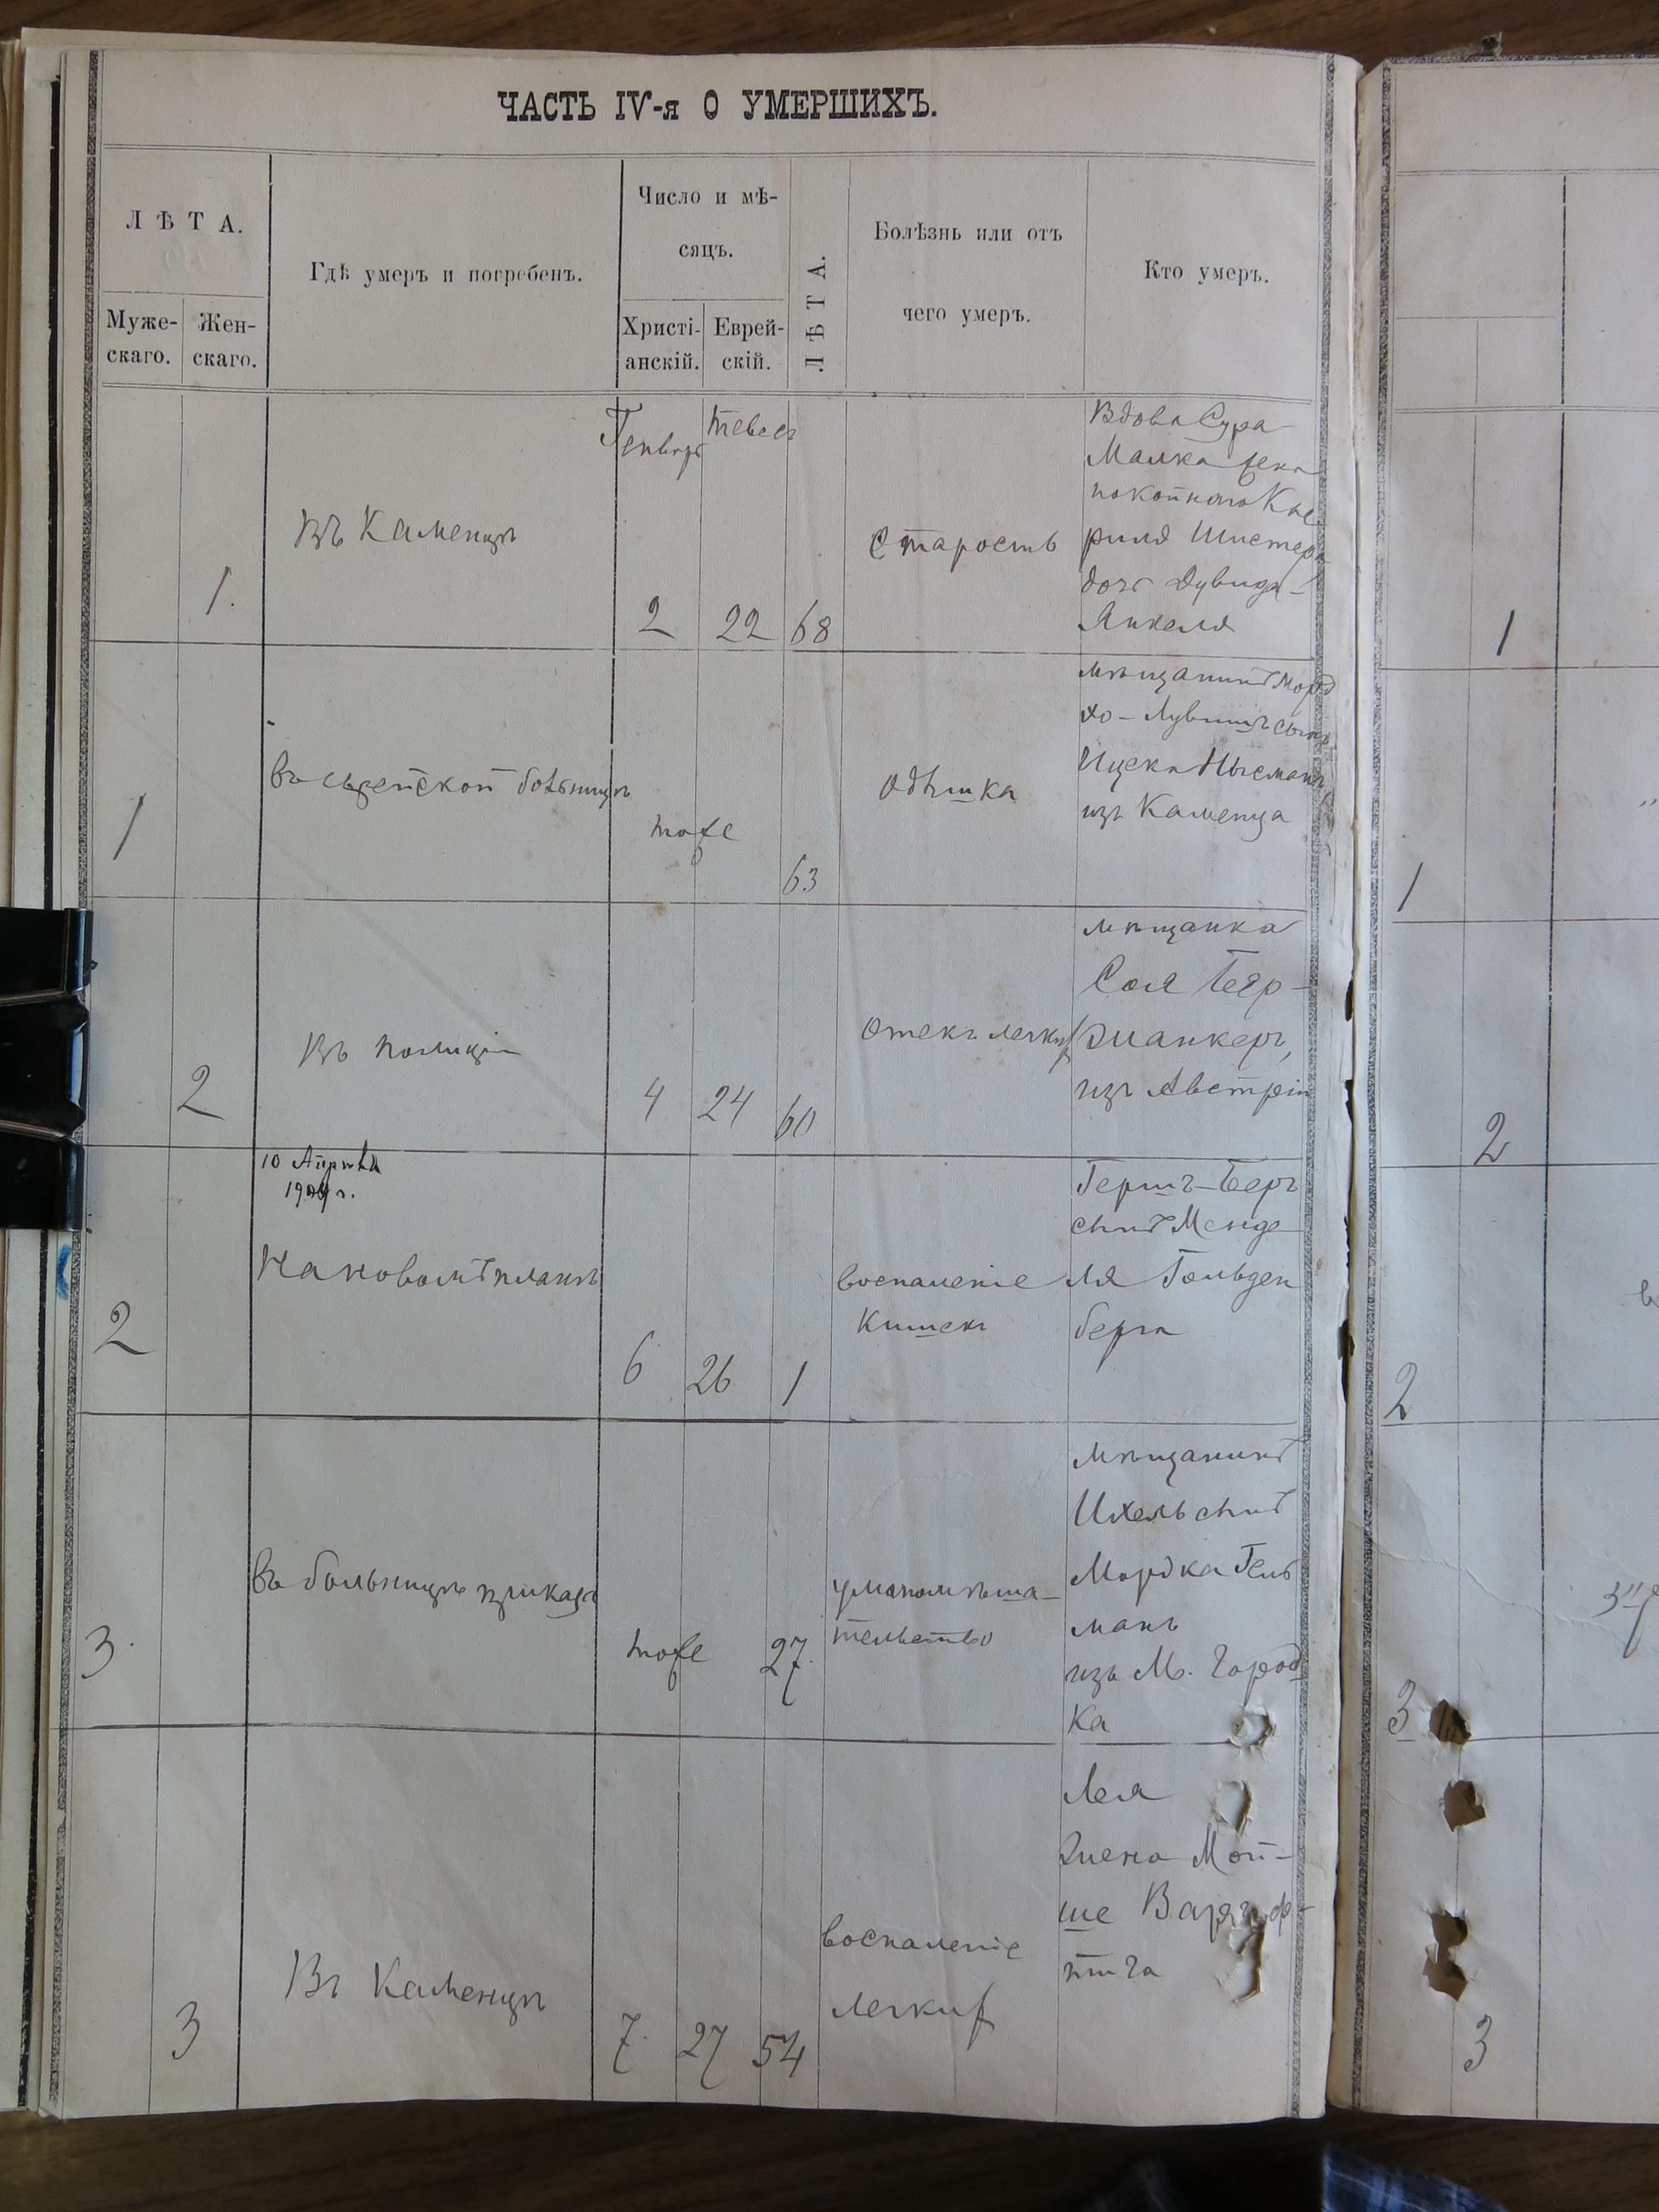 ЧАСТЬ IV-я О УМЕРШИХЪ.
ЛѢТА.
Муже-
скаго.
Жен-
скаго.
Гдѣ умеръ и погребенъ.
Число и мѣ-
сяцъ.
Христі-
анскій.
Еврей-
скій.
ЛѢТА.
Болѣзнь или отъ
чего умеръ.
Кто умеръ.
Генварь
Тевесъ
1.
Въ Каменцѣ
2
22
68
Старость
Вдова Сура
Малка жена
покойнаго
Шистеръ
дочь Дувида-
Янкеля
1
1
въ Еврейской больницѣ
тоже
63
одышка
мѣщанинъ Морд
ко- сынъ
Ицека
изъ Каменца
1
2
Въ полиціи
4
24
60
Отекъ легкихъ
мѣщанка
Сея Беер-
Эманкеръ,
изъ Австріи
2
10 Апрѣля
190 г.
2
На новомъ планѣ
6
26
1
воспаленіе
кишекъ
Гершъ-Беръ
сынъ Менде
ля Гольден
берга
2
3.
въ больницѣ приказа
тоже
27.
умопомѣша-
тельство
мѣщанинъ
Ихель сынъ
Мордка Гель
манъ
изъ М. Город
ка
3
3
Въ Каменцѣ
7.
27
54
воспаленіе
легкихъ
Лея
жена Мой-
ше
3